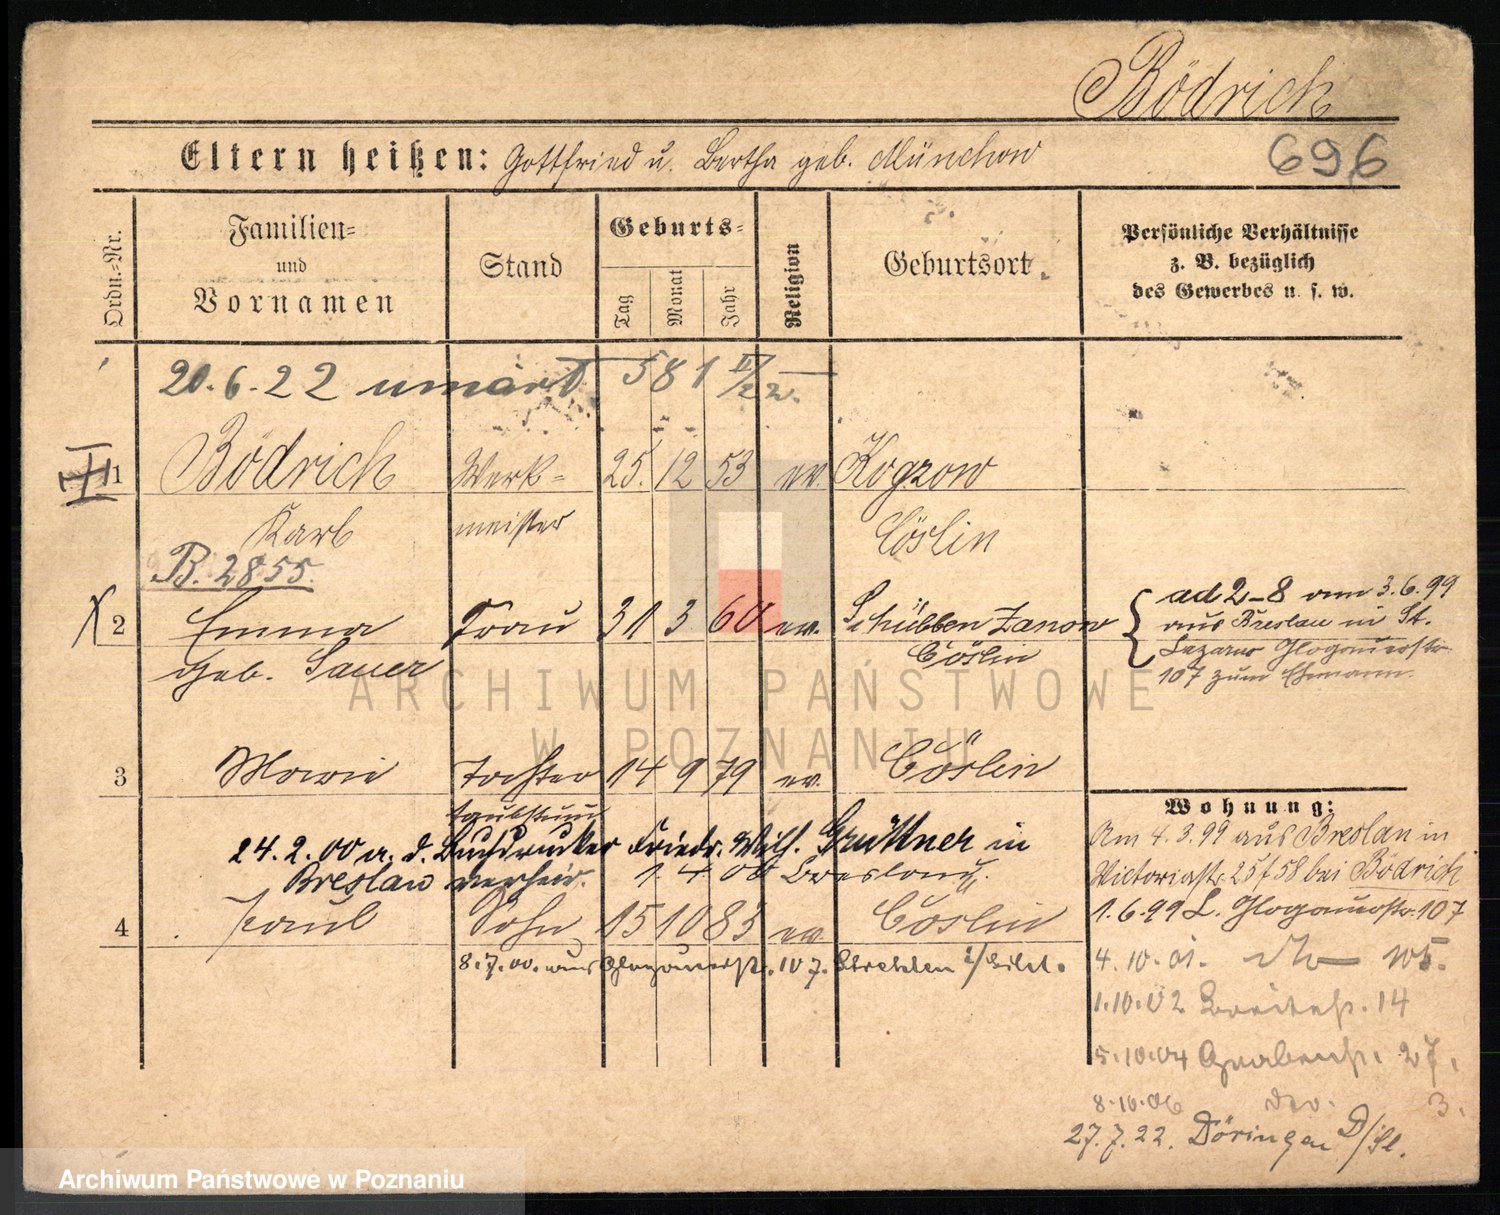 Bödrich
Eltern heißen: Gottfried u. Bertha geb. Münchow
696
Ordn.-Nr.
Familien-
und
Vornamen
Stand
Geburts-
Tag
Monat
Jahr
Religion
Geburtsort
Persönliche Verhältnisse
z. B. bezüglich
des Gewerbes u. s. w.
20.6.22 581 II/22.
1 Bödrich Werk- 25. 12 53 ev. Kogzow
Karl meister Cöslin
B. 2855.
2 Emma Frau 31 3 60 ev. Schübben Zanow
geb. Sauer Cöslin
ad 2-8 am 3.6.99
aus Breslau in St.
Lazarus Glogauerstr.
107 zum Ehemann.
3 Marie Tochter 14 9 79 ev. Cöslin
24.2.00 a. d. Buchdrucker Friedr. Wilh. Grüttner in
Breslau verheir. 1 4 00 Breslau.
4 Paul Sohn 15 10 83 ev. Cöslin
8.7.00. aus Glogauerstr. 107. Strehlen
Wohnung:
Am 4.3.99 aus Breslau in
Victoriastr. 25/58 bei Bödrich
1.6.99 L. Glogauerstr. 107
4.10.01. dto 105.
1.10.02 Breitestr. 14
5.10.04 Grabenstr. 27.
8.10.06 do. 3.
27.7.22. Döringen
ARCHIWUM PAŃSTWOWE
W POZNANIU
Archiwum Państwowe w Poznaniu